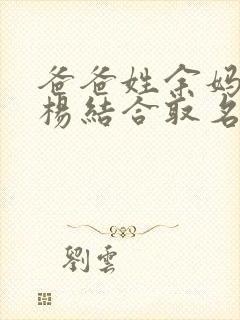 爸爸姓余妈
楊結合取名
劉雲